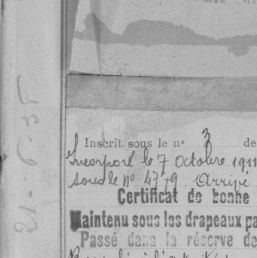 Inscrit sous le n° 3 de
Incorporé le 7 Octobre 1911
sous le n° 4779. Arrivé
Certificat de bonne
Maintenu sous les drapeaux pa
Passé dans la réserve de
21-6-35